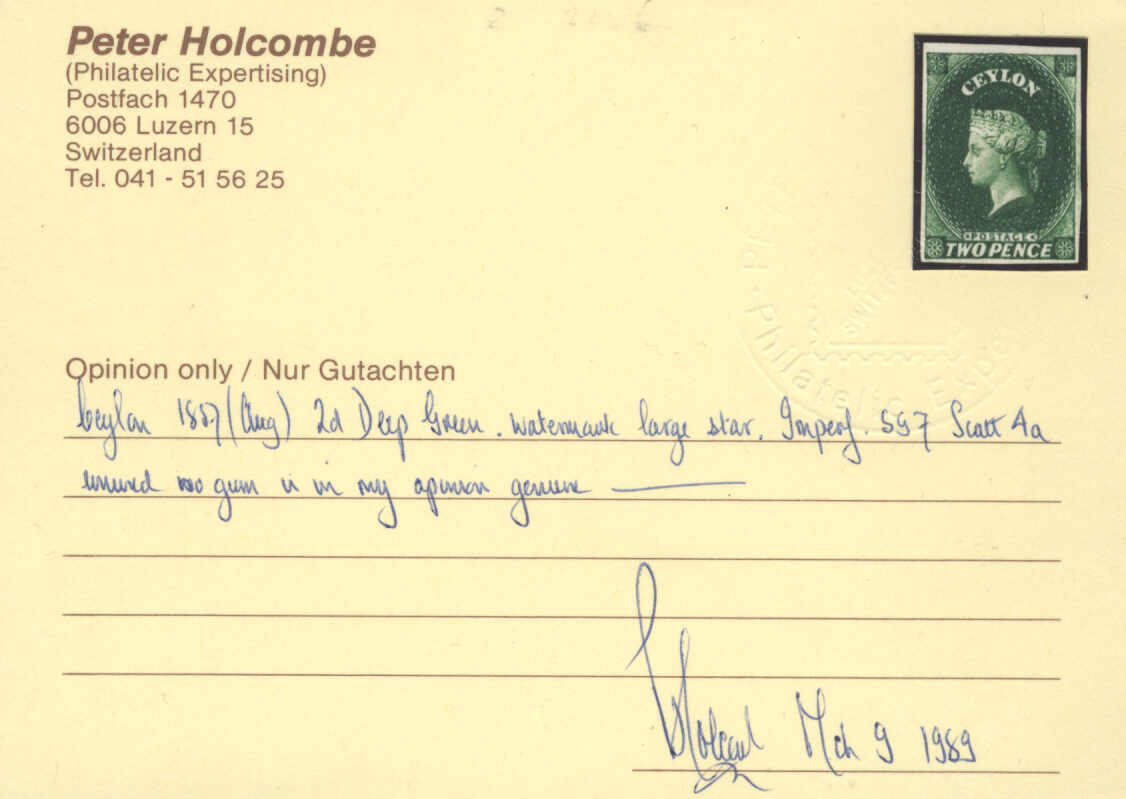 Peter Holcombe
(Philatelic Expertising)
Postfach 1470
6006 Luzern 15
Switzerland
Tel. 041 - 51 56 25
CEYLON
POSTAGE
TWO PENCE
Philatelic Exper
SWITZ
Opinion only / Nur Gutachten
Ceylon 1857 (Aug) 2d Deep Green. Watermark large star. Imperf. SG7 Scott 4a
unused no gum is in my opinion genuine
PHolcombe Mch 9 1989